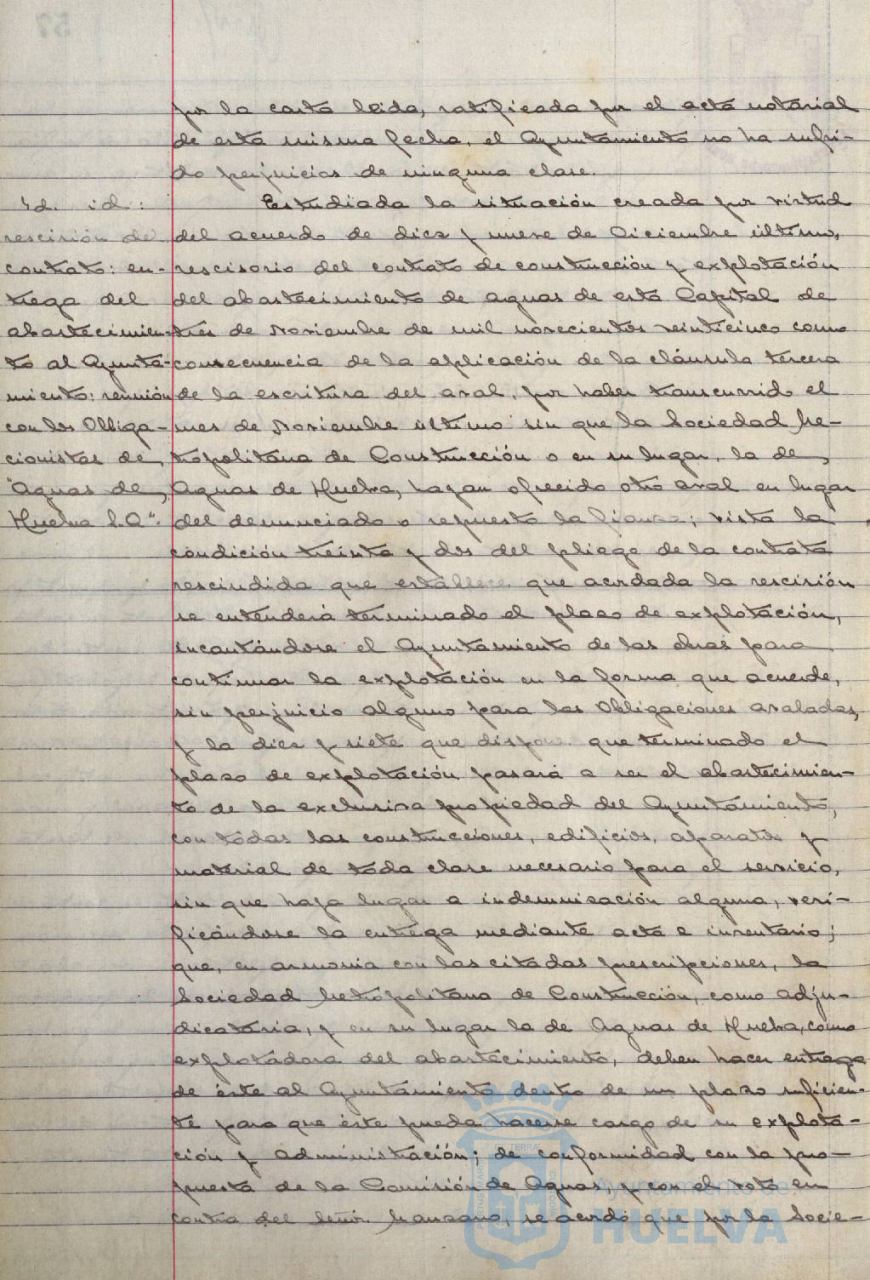 por la carta leida, ratificada por el acta notarial
de esta misma fecha, el Ayuntamiento no ha sufri-
do perjuicios de ninguna clase.
Id. id:
rescisión de
contrato: en-
trega del
abastecimien-
to al Ayunta-
miento: reunión
con los Obliga-
cionistas de
"Aguas de
Huelva S.A".
Estudiada la situación creada por virtud
del acuerdo de diez y nueve de Diciembre último,
rescisorio del contrato de construcción y explotación
del abastecimiento de aguas de esta Capital de
tres de Noviembre de mil novecientos veinticinco como
consecuencia de la aplicación de la cláusula tercera
de la escritura del aval, por haber transcurrido el
mes de Noviembre último sin que la Sociedad Me-
tropolitana de Construcción o en su lugar, la de
Aguas de Huelva, hayan ofrecido otro aval en lugar
del denunciado o repuesto la fianza; vista la
condición treinta y dos del pliego de la contrata
rescindida que establece que acordada la rescisión
se entenderá terminado el plazo de explotación,
incautándose el Ayuntamiento de las obras para
continuar la explotación en la forma que acuerde,
sin perjuicio alguno para las Obligaciones avaladas,
y la diez y siete que dispone que terminado el
plazo de explotación pasará a ser el abastecimien-
to de la exclusiva propiedad del Ayuntamiento,
con todas las construcciones, edificios, aparatos y
material de toda clase necesario para el servicio,
sin que haya lugar a indemnización alguna, veri-
ficándose la entrega mediante acta e inventario;
que, en armonia con las citadas prescripciones, la
Sociedad Metropolitana de Construcción, como adju-
dicataria, y en su lugar la de Aguas de Huelva, como
explotadora del abastecimiento, deben hacer entrega
de éste al Ayuntamiento dentro de un plazo suficien-
te para que éste pueda hacerse cargo de su explota-
ción y administración; de conformidad con la pro-
puesta de la Comisión de Aguas, y con el voto en
contra del Señor Manzano, se acordó que por la Socie-
Ayuntamiento de
HUELVA